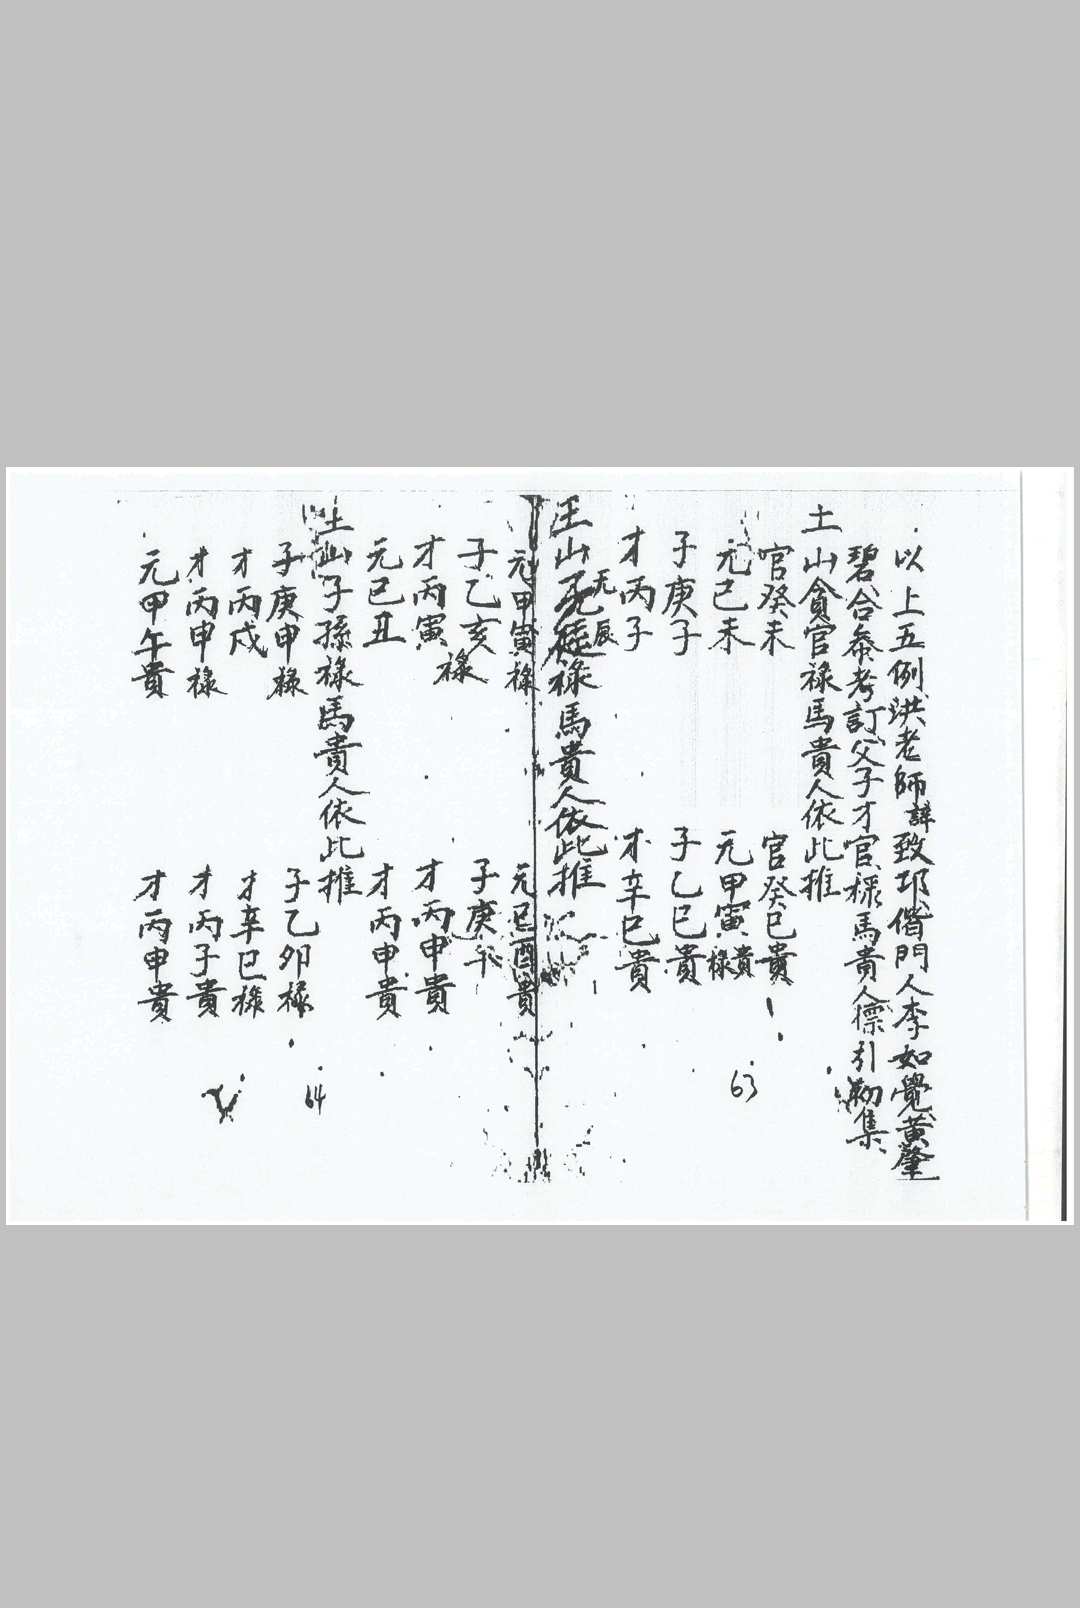 以上五例洪老師諱致邛偕門人李如覺黃肇
碧合參考訂父子才官祿馬貴人標引勒集
土山貪官祿馬貴人依此推
官癸未 官癸巳貴
元己未 元甲寅祿貴
子庚子 子乙巳貴
才丙子 才辛巳貴
土山元辰祿馬貴人依此推
元甲寅祿 元己酉貴
子乙亥祿 子庚午
才丙寅 才丙申貴
元己丑 才丙申貴
土山子孫祿馬貴人依此推
子庚申祿 子乙卯祿
才丙戌 才辛巳祿
才丙申祿 才丙子貴
元甲午貴 才丙申貴
63
64